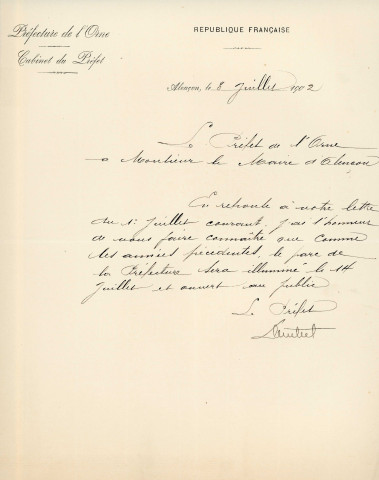 Préfecture de l'Orne
Cabinet du Préfet
REPUBLIQUE FRANÇAISE
Alençon, le 8 Juillet 1902
Le Préfet de l'Orne
à Monsieur le Maire d'Alençon
En réponse à votre lettre
du 1er Juillet courant, j'ai l'honneur
de vous faire connaître que comme
les années précédentes, le parc de
la Préfecture sera illuminé le 14
Juillet et ouvert au public
Le Préfet